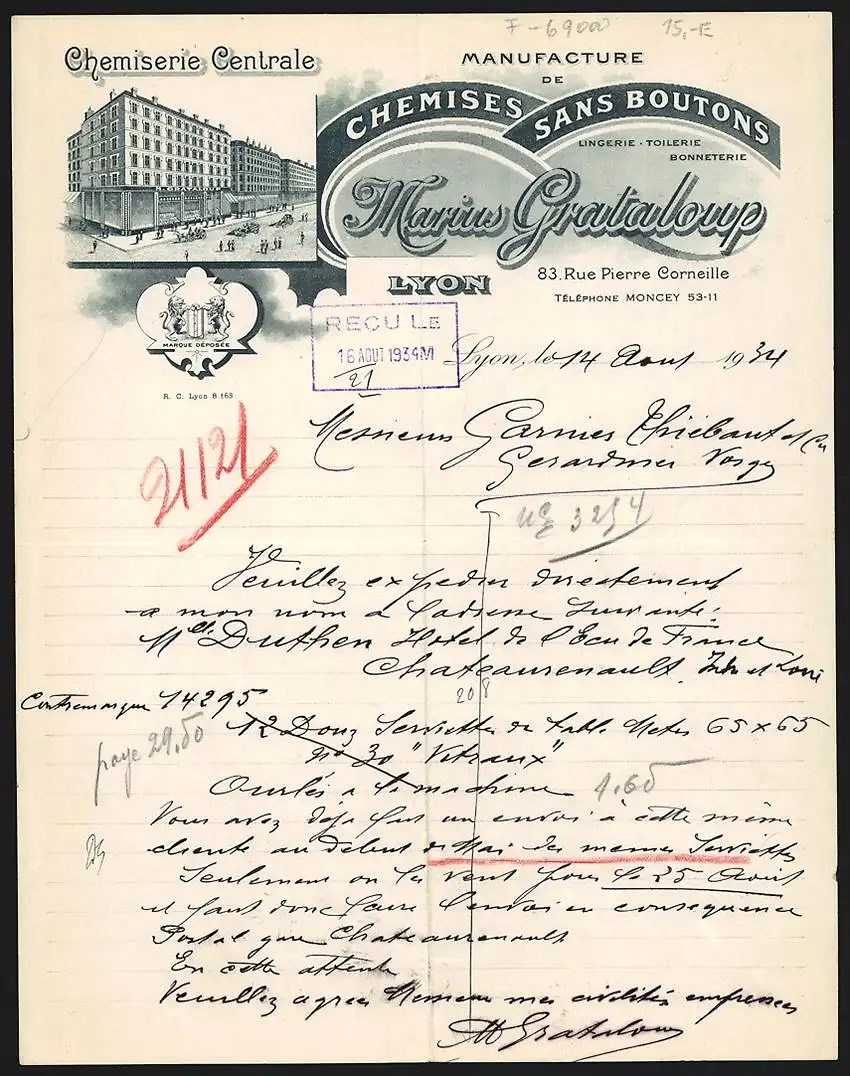 F-69000 15,-E
Chemiserie Centrale
MANUFACTURE
DE
CHEMISES SANS BOUTONS
LINGERIE · TOILERIE
BONNETERIE
Marius Grataloup
LYON
83, Rue Pierre Corneille
TÉLÉPHONE MONCEY 53-11
MARQUE DÉPOSÉE
R. C. Lyon B 163
RECU LE
16 AOUT 1934 M
21
Lyon, le 14 Aout 1934
Messieurs Garnier Thiebaut et Cie
Gerardmer Vosges
21121
3254
Veuillez expedier directement
a mon nom a l'adresse suivante:
Mlle Duthen Hotel de l'Ecu de France
Chateaurenault, Indre et Loire
208
Contremarque 14295
12 Douz Serviettes de table Metis 65 x 65
no 30 "Vitraux"
paye 29,50
Ourlés a la machine
1.60
Vous avez déja fait un envoi à cette même
cliente au debut de Mai des memes Serviettes
Seulement on les veut pour le 25 Aout
il faut donc faire l'envoi en consequence
Postal gare Chateaurenault
En cette attente
Veuillez agreer Messieurs mes civilités empressées
M Grataloup